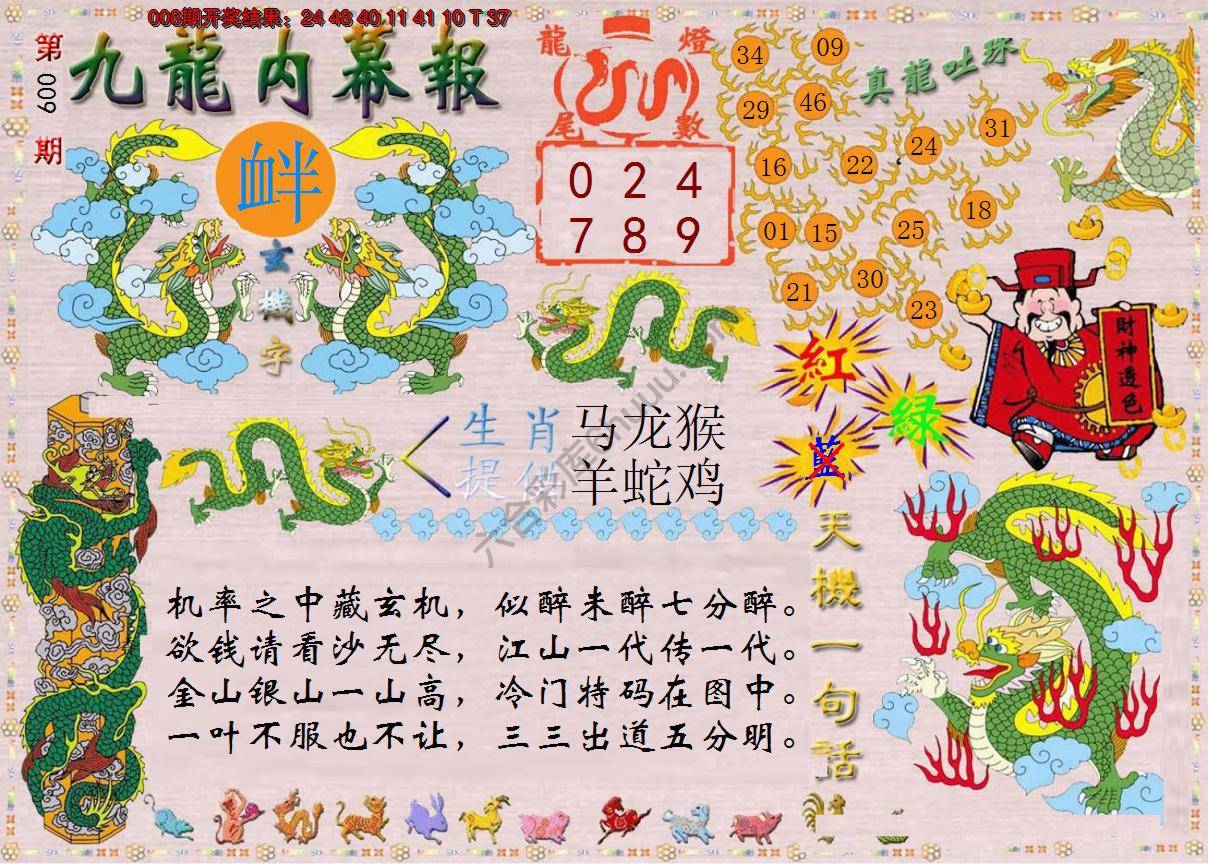 008期开奖结果：24 48 40 11 41 10 T 37
第
009
期
九龍内幕報
衅
玄
機
字
龍
燈
尾
數
0 2 4
7 8 9
真龍吐珠
34
09
29
46
16
22
24
31
01
15
25
18
21
30
23
財神透色
紅
綠
藍
生肖
提供
马龙猴
羊蛇鸡
天機一句話
机率之中藏玄机，似醉未醉七分醉。
欲钱请看沙无尽，江山一代传一代。
金山银山一山高，冷门特码在图中。
一叶不服也不让，三三出道五分明。